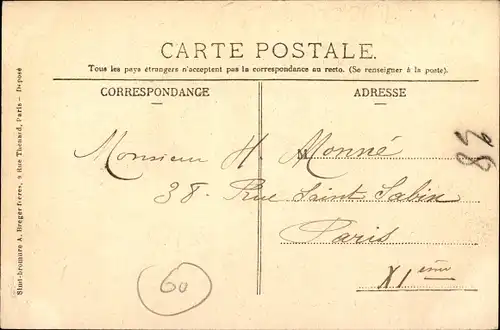 CARTE POSTALE.
Tous les pays étrangers n'acceptent pas la correspondance au recto. (Se renseigner à la poste).
CORRESPONDANCE
ADRESSE
Monsieur H. Monné
38 - Rue Saint Sabin
Paris
XIème
60
Simi-bromure A. Breger frères, 9 Rue Thénard, Paris — Déposé